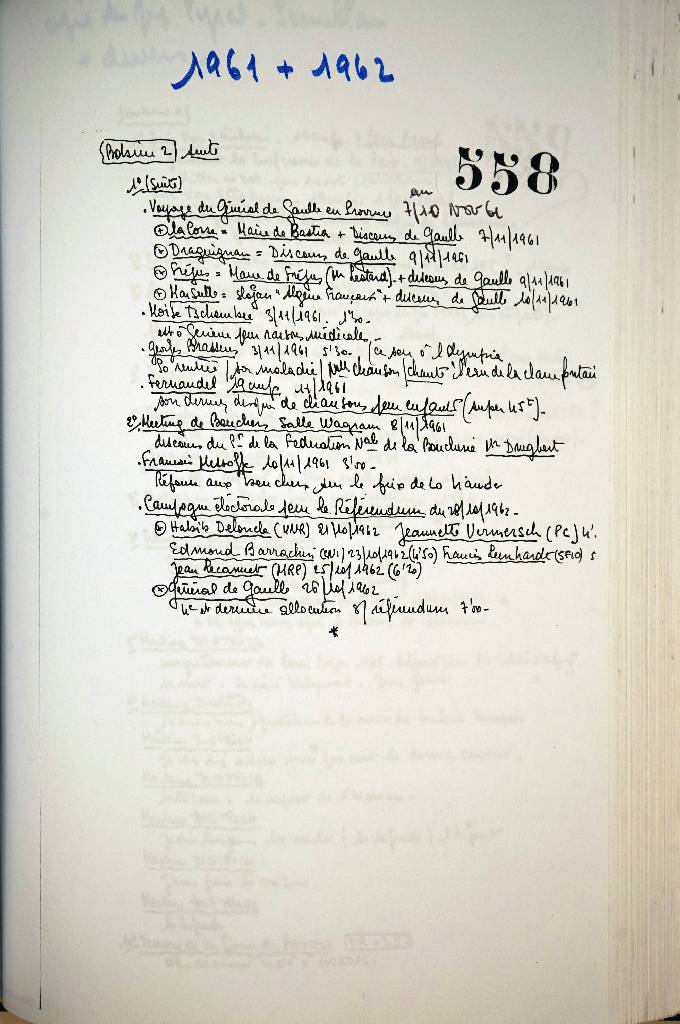 1961 + 1962
Bobine 2 suite
558
1° (Suite)
. Voyage du Général de Gaulle en Provence 7/10 NOV 61
au
⊙ La Corse = Maire de Bastia + Discours de Gaulle 7/11/1961
⊙ Draguignan = Discours de Gaulle 9/11/1961
⊙ Fréjus = Maire de Fréjus (Mr Léotard) + discours de Gaulle 9/11/1961
⊙ Marseille = slogan "Algérie Française" + discours de Gaulle 10/11/1961
. Moïse Tschombée 3/11/1961. 1'30.
est à Genève pour raisons médicales -
. Georges Brassens 3/11/1961 5'30. (ce soir à l'Olympia
So rentrée / sa maladie / Nlles chanson / chante "l'eau de la claire fontai
. Fernandel 11/1961
son dernier disque de chansons pour enfants (super 45T).
2° Meeting de Bouchers Salle Wagram 8/11/1961
discours du Pt de la Federation Nale de la Boucherie Mr Drugbert
. François Missoffe 10/11/1961 3'00 -
Réponse aux bouchers sur le prix de la viande
. Campagne électorale pour le Référendum du 28/10/1962 -
⊙ Habib Deloncle (UNR) 21/10/1962 Jeannette Vermersch (PC) 4'.
Edmond Barrachin (CNI) 23/10/1962 (4'50) Francis Leenhardt (SFIO) 5
Jean Lecanuet (MRP) 25/10/1962 (6'20)
⊙ Général de Gaulle 26/10/1962
4e et dernière allocution s/ référendum 7'00 -
*